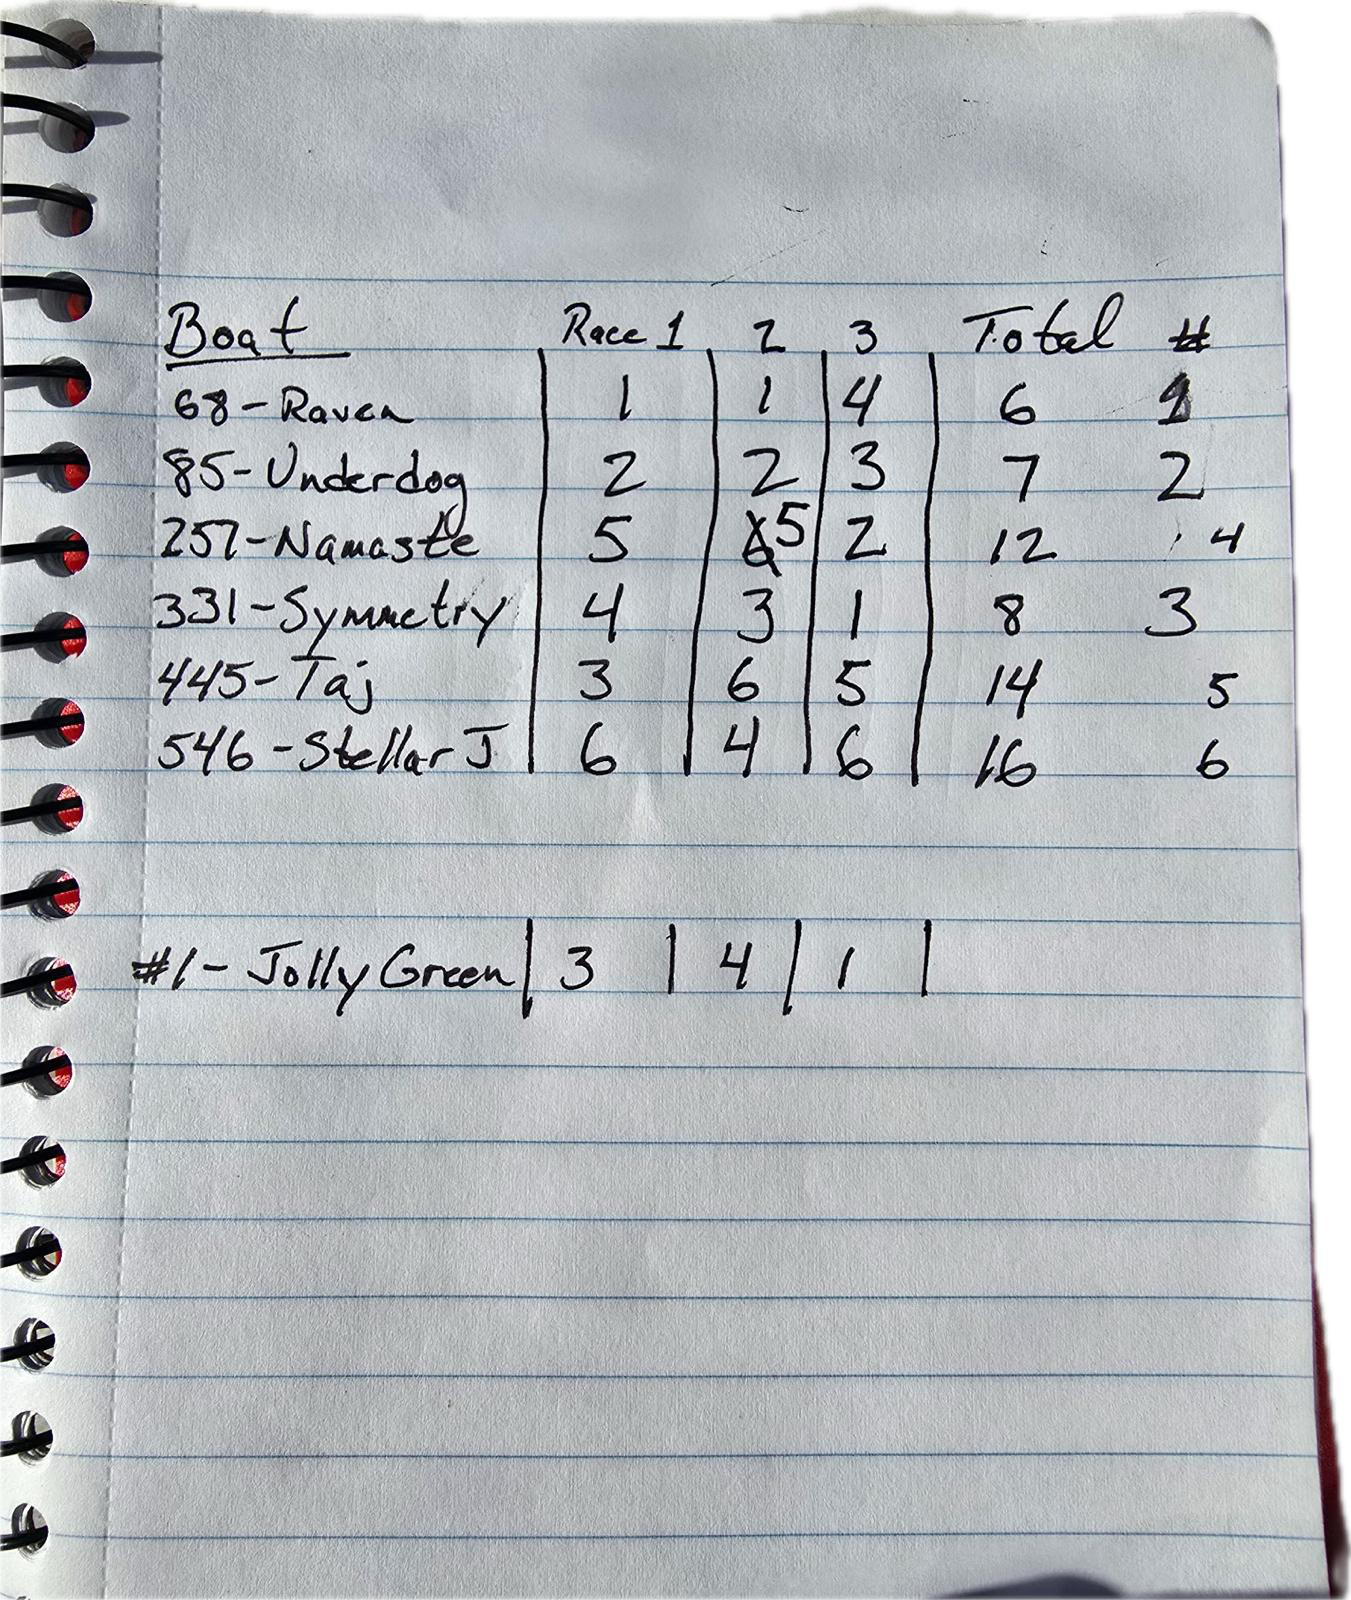 Boat Race 1 2 3 Total #
68-Raven 1 1 4 6 1
85-Underdog 2 2 3 7 2
257-Namaste 5 5 2 12 4
331-Symmetry 4 3 1 8 3
445-Taj 3 6 5 14 5
546-Stellar J 6 4 6 16 6
#1-Jolly Green 3 4 1